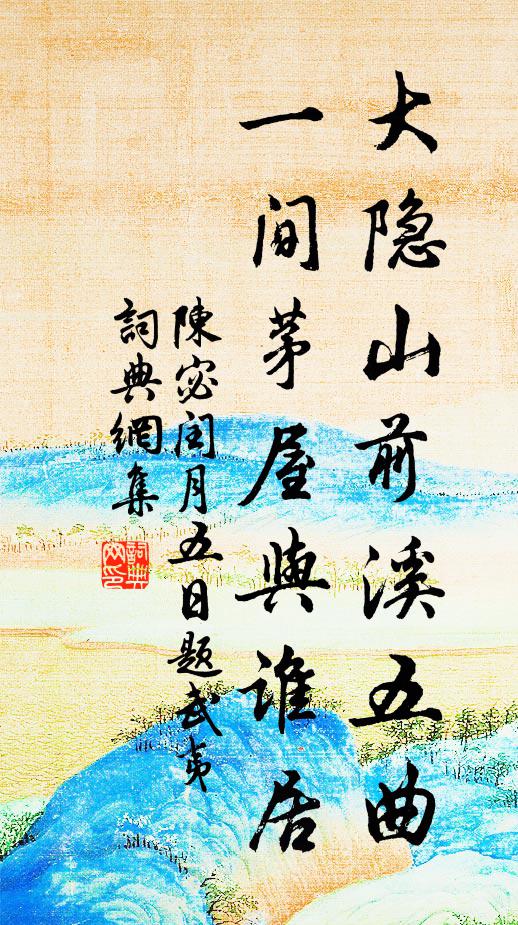 大隐山前溪五曲
一间茅屋與谁居
陳宓閏月五日题武夷
詞典網集
詞典
网印